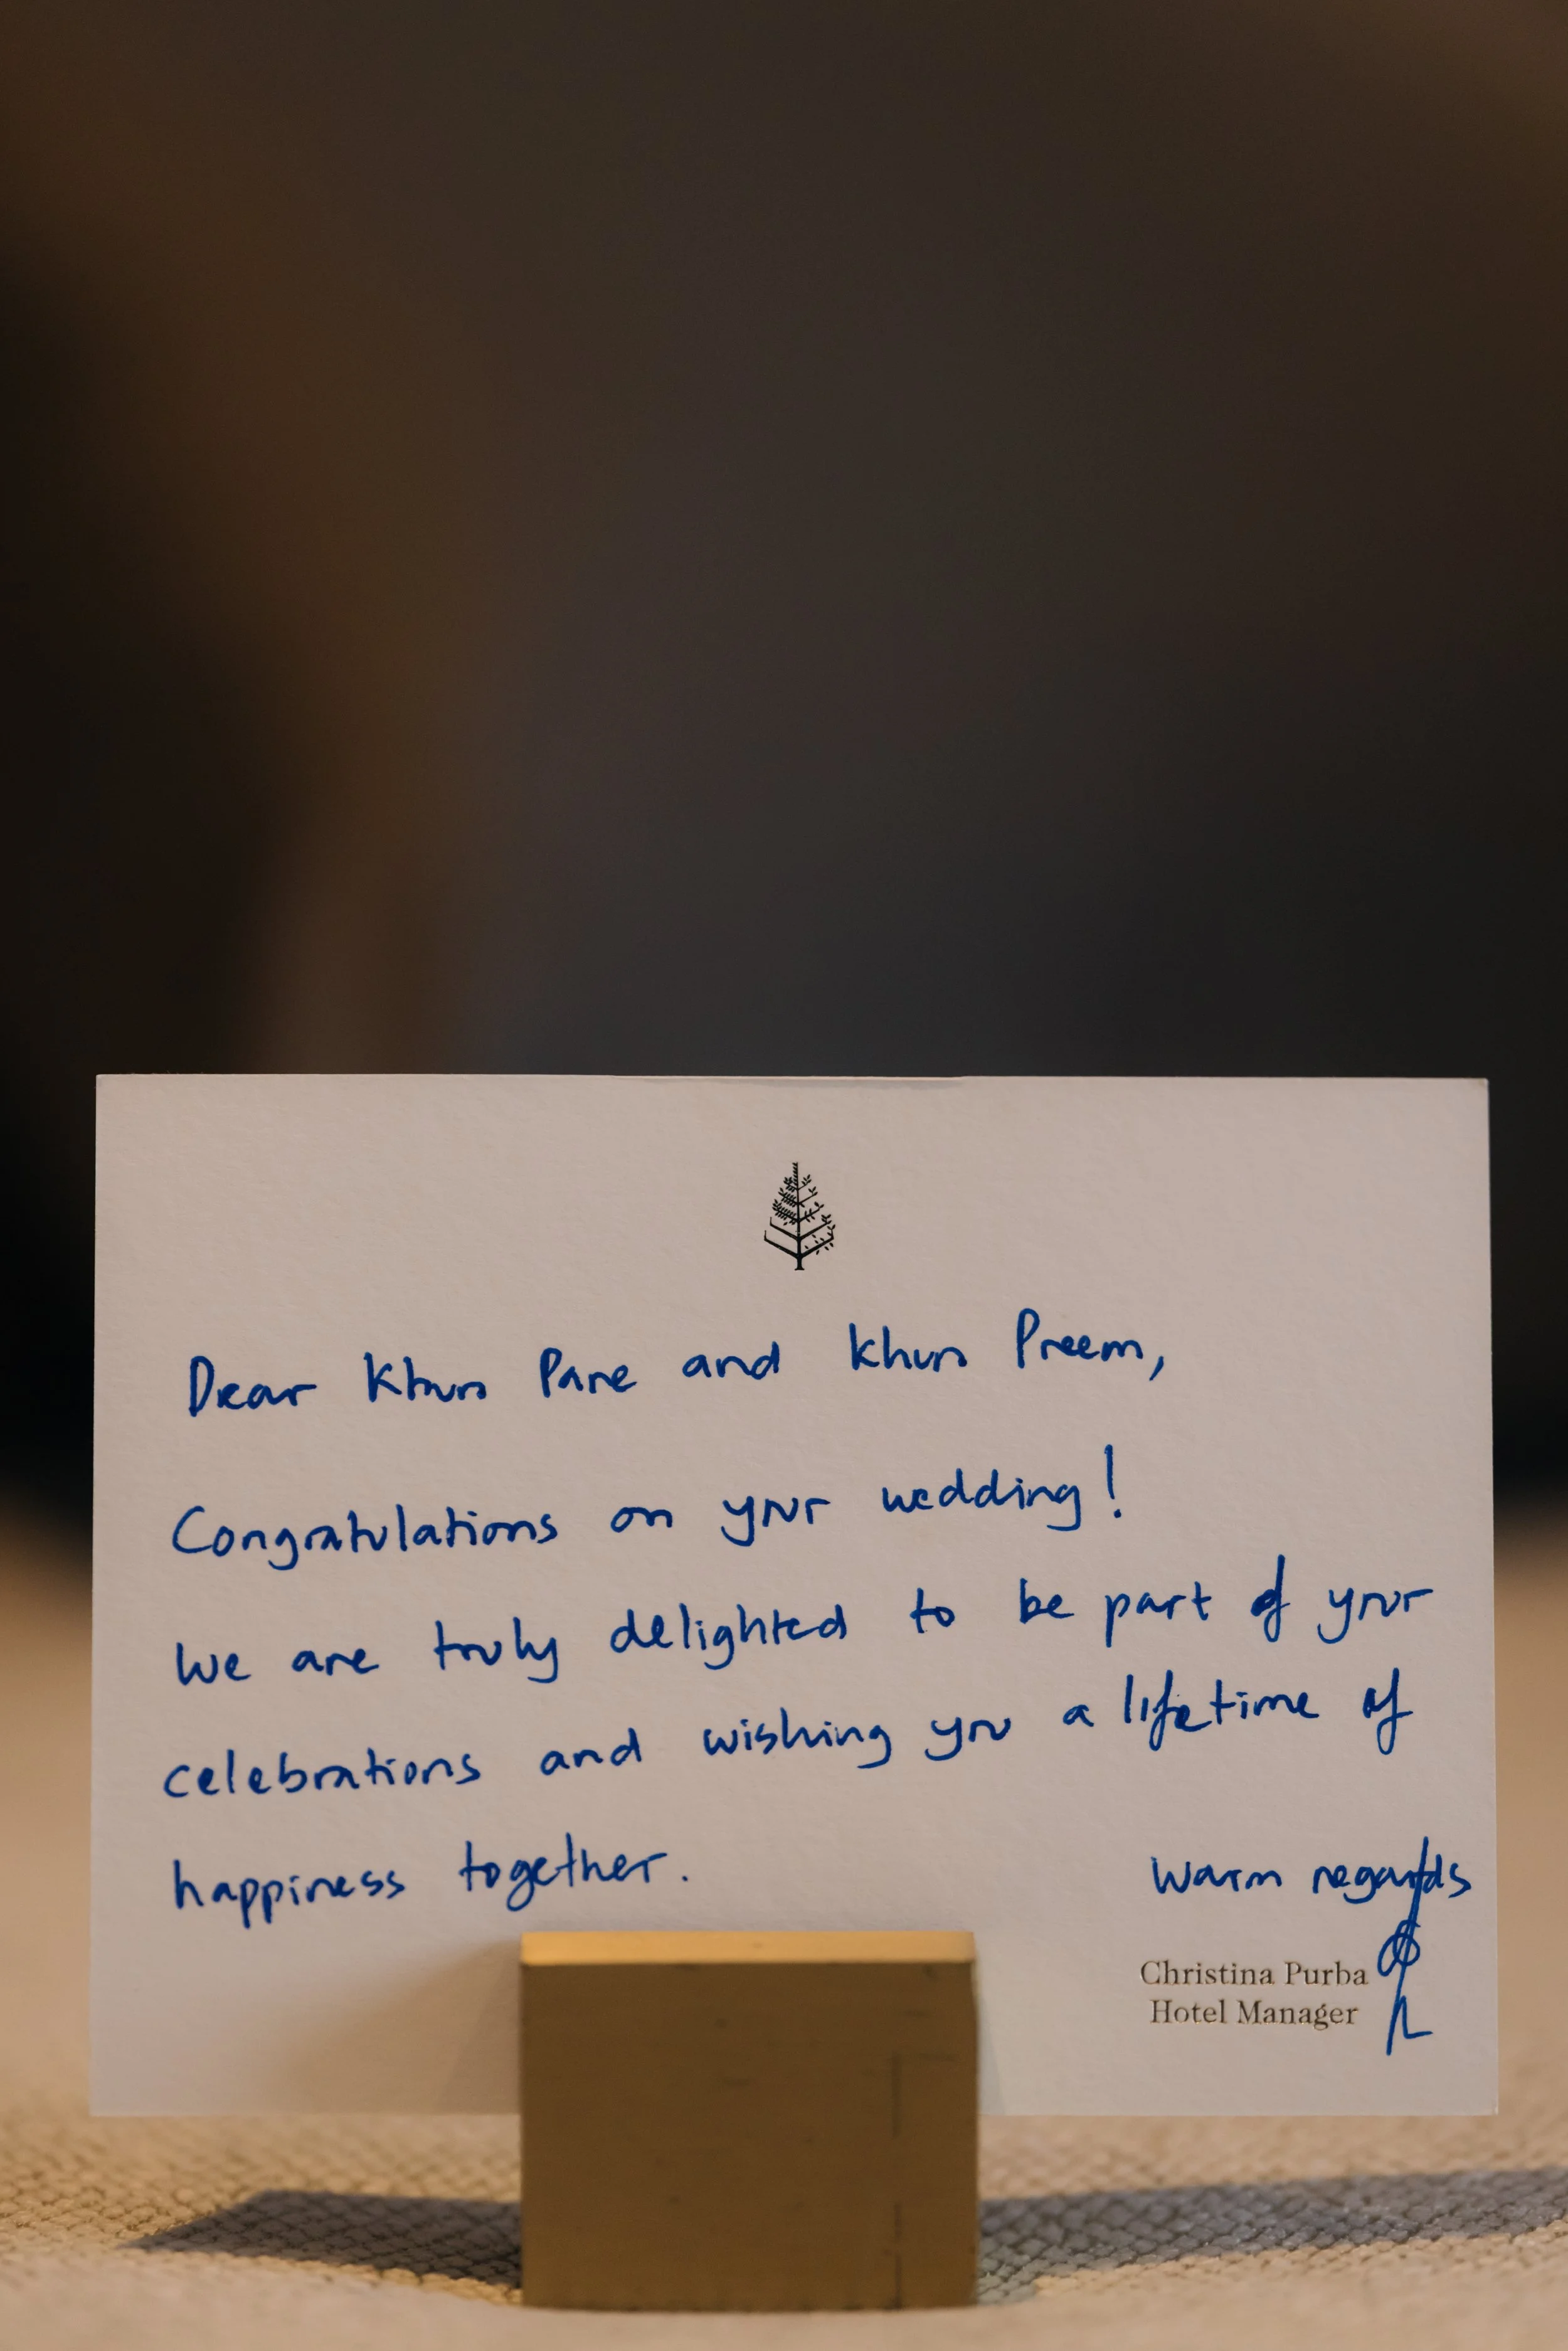 Dear Khun Pare and Khun Preem,
Congratulations on your wedding!
We are truly delighted to be part of your
celebrations and wishing you a lifetime of
happiness together.
Warm regards
Christina Purba
Hotel Manager